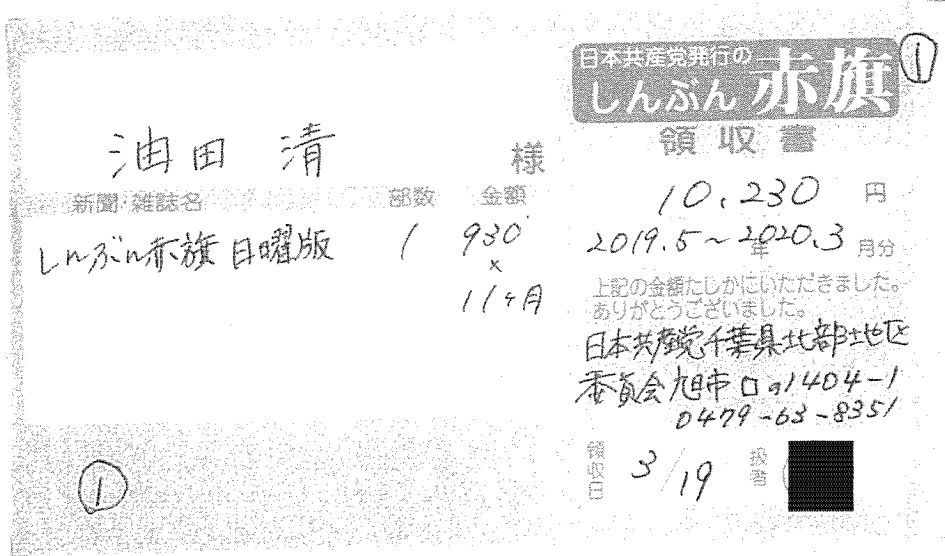 ①
日本共産党発行の
しんぶん赤旗
領収書
油田 清 様
新聞・雑誌名 部数 金額
しんぶん赤旗 日曜版 1 930
×
11ヶ月
10,230 円
2019.5～2020.3 月分
年
上記の金額たしかにいただきました。
ありがとうございました。
日本共産党千葉県北部地区
委員会 旭市ロの1404-1
0479-63-8351
領収日 3/19 扱者
①